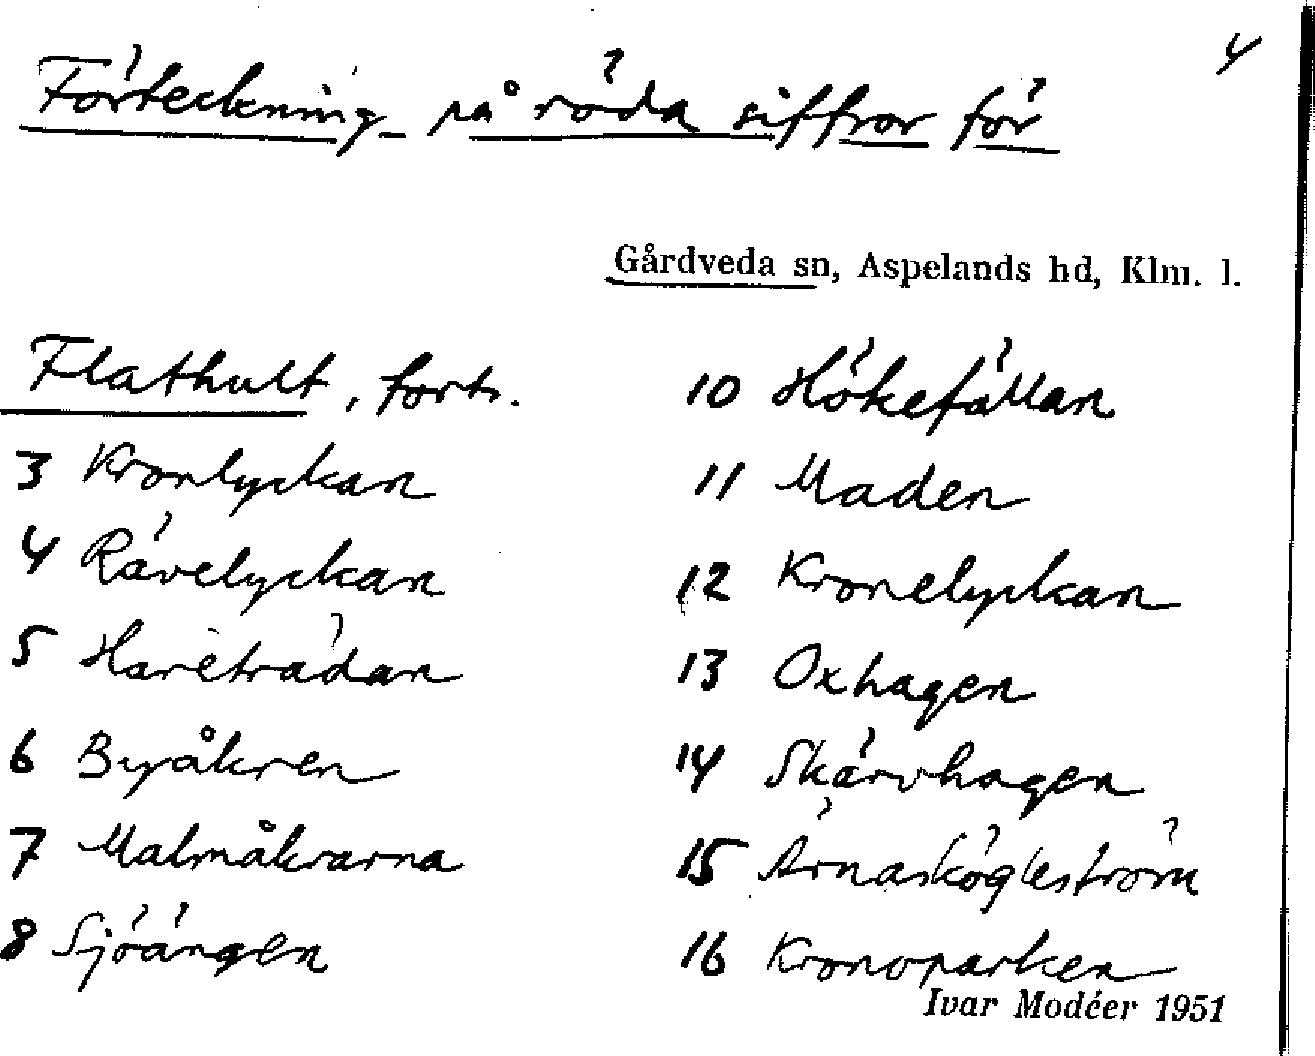 4
Förteckning på röda siffror för
Gårdveda sn, Aspelands hd, Klm. l.
Flathult, forts.
3 Kronlyckan
4 Rävelyckan
5 Hareträdan
6 Byåkren
7 Malmåkrarna
8 Sjöängen
10 Hökefällan
11 Maden
12 Kronelyckan
13 Oxhagen
14 Skärvhagen
15
16 Kronoparken
Ivar Modéer 1951